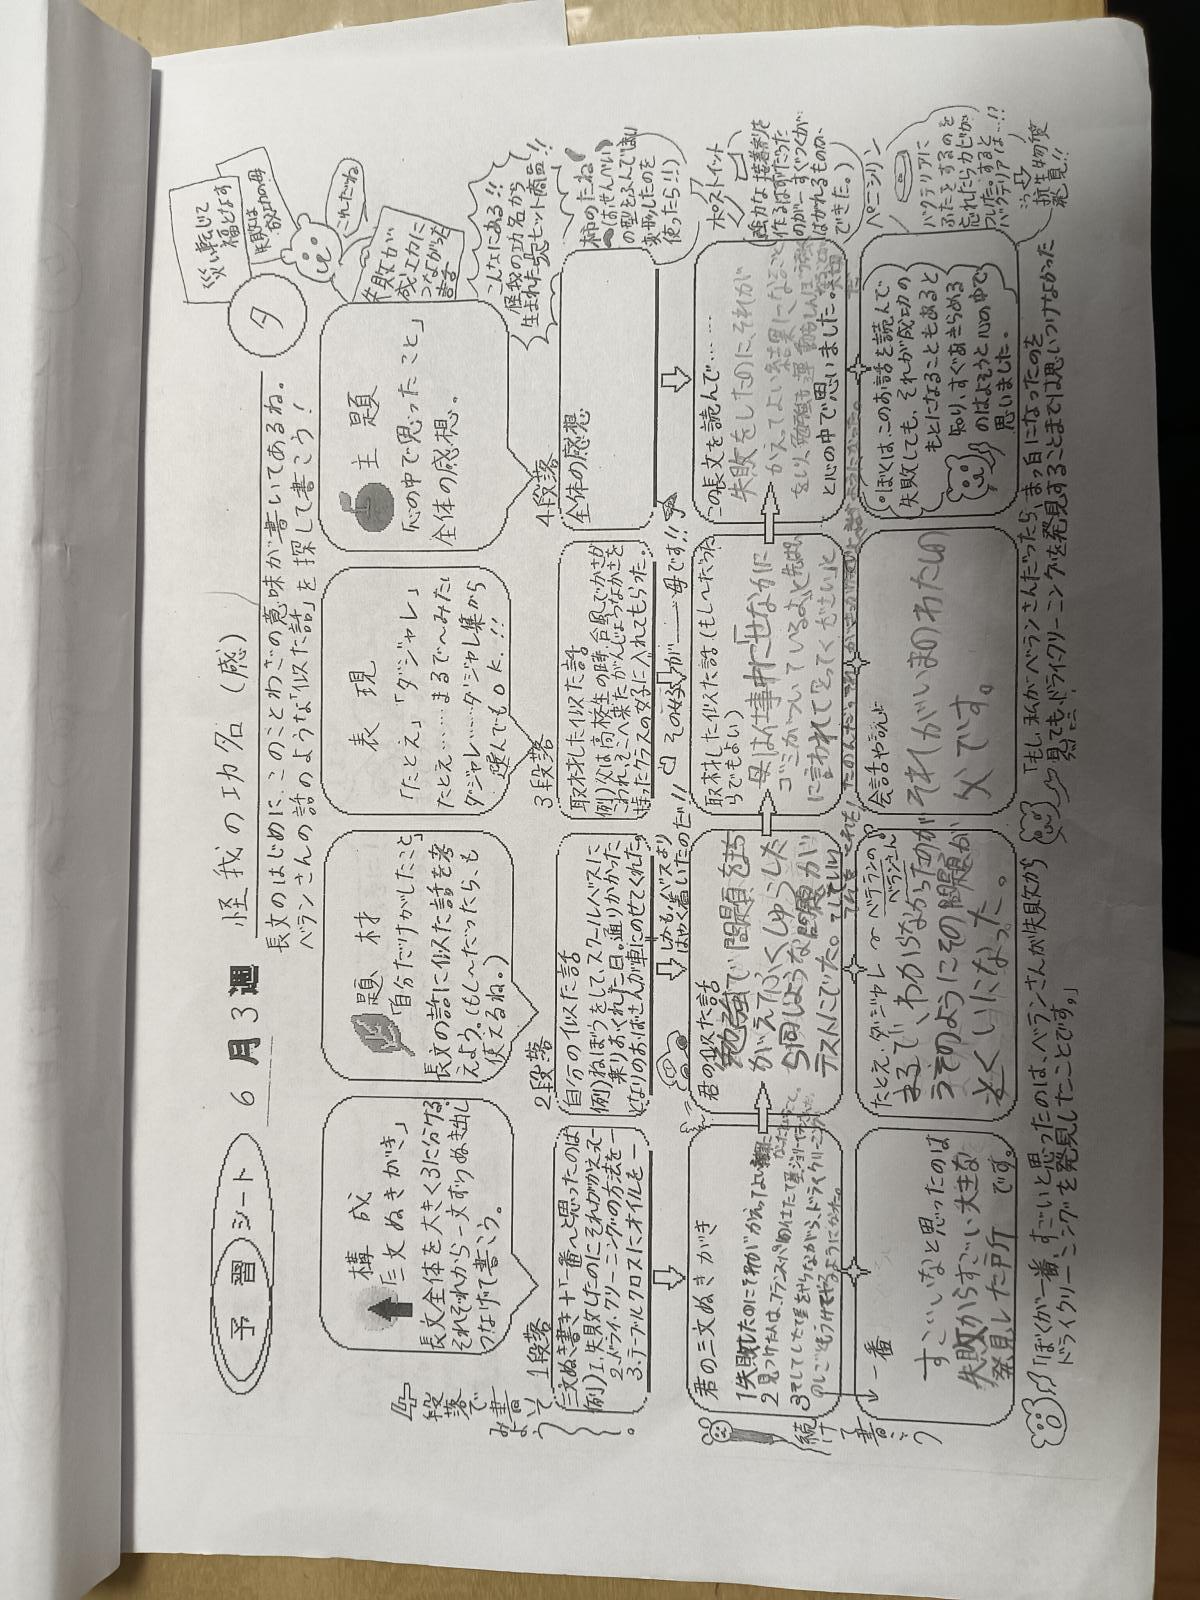 予習シート 6月3週 怪我の功名(感) タ
長文のはじめに、このことわざの意味が書いてあるね。
ベランさんの話のような「似た話」を探して書こう!
災い転じて
福となす
失敗は
成功の母
これだね
失敗が
成功に
つながった
話
構成
「三文ぬきがき」
長文全体を大きく3に分ける。
それぞれから一文ずつぬき出し
つなげて書こう。
題材
「自分だけがしたこと」
長文の話に似た話を考
えよう。(もし~だったら、も
使えるね。)
表現
「たとえ」「ダジャレ」
たとえ……まるで~みたい
ダジャレ……ダジャレ集から
選んでもOK!!
主題
「心の中で思ったこと」
全体の感想。
こんなにある!!
怪我の功名から
生まれた大ヒット商品!!
4
段落で
書いて
みよう
1段落
三文ぬき書き+「一番~と思ったのは
例)1.失敗したのにそれがかえって―
2.ドライ・クリーニングの方法を―
3.テーブルクロスにオイルを―
2段落
自分の似た話
例)ねぼうをして、スクールバスに
乗りおくれた日。通りかかった
となりのおばさんが車にのせてくれた。
しかもバスより
はやく着いたのだ!!
3段落
取材した似た話
例)父は高校生の時、台風でかさが
こわれ、そこへ来たがんじょうなかさを
持ったクラスの女子に入れてもらった。
その女子が――母です!!
4段落
全体の感想
柿のたね
はせんべい
の型をふんで
変形したのを
使ったら!!
君の三文ぬきがき
1失敗したのにそれがかえってよい結果に
君の似た話
勉強で問題をまち
がえてふくしゅうした
ら同じような問題が
テストにでた。
取材した似た話(もし~だった
らでもよい)
母は仕事中に「せなかに
ゴミがついているよ」と先ぱい
に言われてとってくださいと
この長文を読んで……
失敗をしたのに、それが
かえってよい結果になること
と心の中で思いました。
ポストイット
強力な接着剤を
作るはずだった
のが…すぐつくが、
はがれるものが、
できた。
続けて書こう
一番
すごいなと思ったのは
失敗からすごい大きな
発見した所です。
たとえ・ダジャレ ~ベテランの
ベランさん
まるで、わからなかったのが
うそのようにその問題が
とくいになった。
会話や説明
それがいまのわたしの
父です。
ぼくは、このお話を読んで
失敗しても、それが成功の
もとになることもあると
知り、すぐあきらめる
のはよそうと心の中で
思いました。
ペニシリン
バクテリアに
ふたをするのを
忘れたらカビが
ついた。すると
バクテリアは…!?
抗生物質
発見!!
「ぼくが一番、すごいと思ったのは、ベランさんが失敗から
ドライクリーニングを発見したことです。」
「もし、私がベランさんだったら、まっ白になったのを
見ても、ドライクリーニングを発見することまでは思いつけなかった